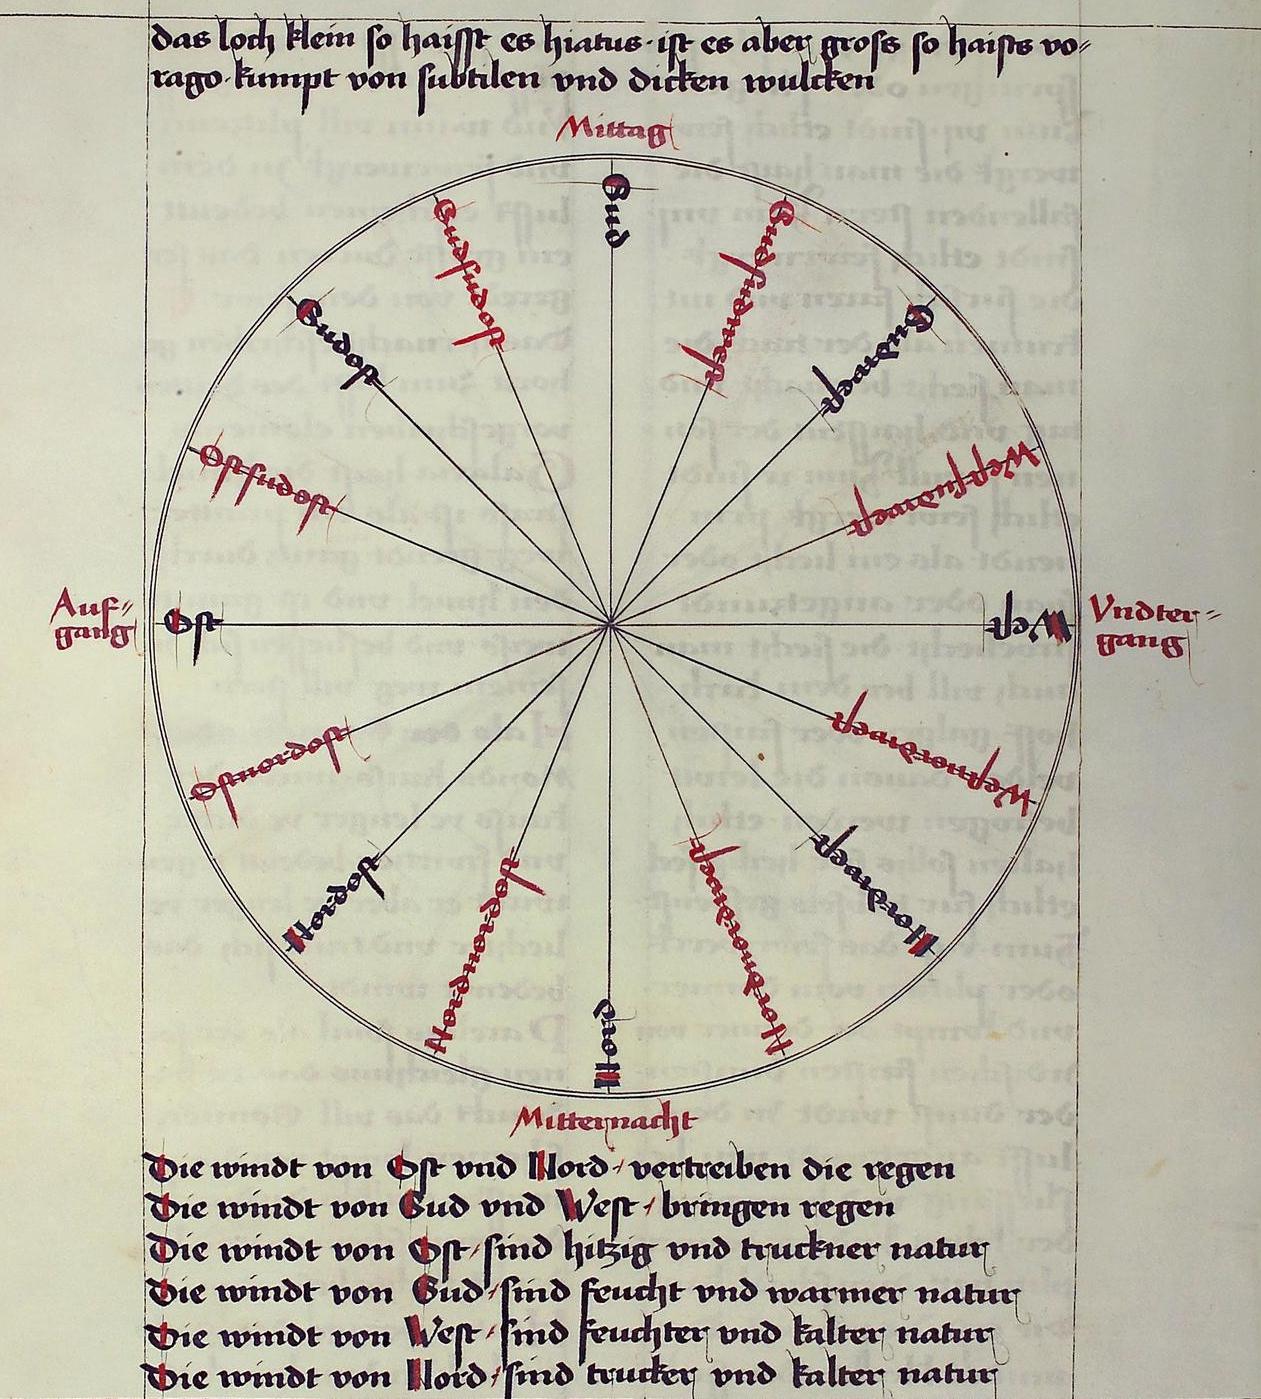 das loch klein so haisst es hiatus · ist es aber gross so haists vo⸗
rago · kumpt von subtilen vnd dicken wulcken
Mittag
Sud
Sudsudost
Sudsudwest
Sudost
Sudwest
Ostsudost
Westsudwest
Auf⸗
gang
Ost
West
Vndter⸗
gang
Ostnordost
Westnordwest
Nordost
Nordwest
Nordnordost
Nordnordwest
Nord
Mitternacht
Die windt von Ost vnd Nord / vertreiben die regen
Die windt von Sud vnd West / bringen regen
Die windt von Ost / sind hitzig vnd truckner natur
Die windt von Sud / sind feucht vnd warmer natur
Die windt von West / sind feuchter vnd kalter natur
Die windt von Nord / sind trucker vnd kalter natur